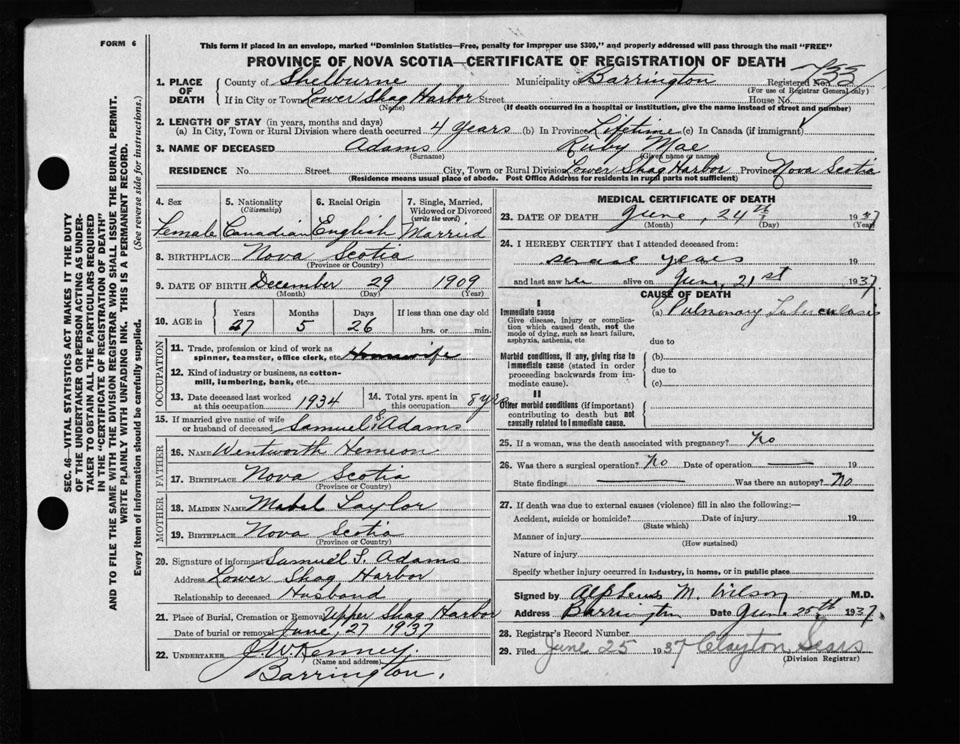 FORM 6
This form if placed in an envelope, marked "Dominion Statistics—Free, penalty for improper use $300," and properly addressed will pass through the mail "FREE"
PROVINCE OF NOVA SCOTIA—CERTIFICATE OF REGISTRATION OF DEATH
SEC. 46—VITAL STATISTICS ACT MAKES IT THE DUTY
OF THE UNDERTAKER OR PERSON ACTING AS UNDER-
TAKER TO OBTAIN ALL THE PARTICULARS REQUIRED
IN THE "CERTIFICATE OF REGISTRATION OF DEATH"
AND TO FILE THE SAME WITH THE DIVISION REGISTRAR WHO SHALL ISSUE THE BURIAL PERMIT.
WRITE PLAINLY WITH UNFADING INK. THIS IS A PERMANENT RECORD.
Every item of information should be carefully supplied. (See reverse side for instructions.)
1. PLACE OF DEATH
County of Shelburne Municipality of Barrington Registered No.
(For use of Registrar General only)
If in City or Town Lower Shag Harbor Street House No.
(Name) (If death occurred in a hospital or institution, give the name instead of street and number)
2. LENGTH OF STAY (in years, months and days)
(a) In City, Town or Rural Division where death occurred 4 years (b) In Province Lifetime (c) In Canada (if immigrant)
3. NAME OF DECEASED Adams Ruby Mae
(Surname) (Given name or names)
RESIDENCE No. Street City, Town or Rural Division Lower Shag Harbor Province Nova Scotia
(Residence means usual place of abode. Post Office Address for residents in rural parts not sufficient)
4. Sex Female
5. Nationality (Citizenship) Canadian
6. Racial Origin English
7. Single, Married, Widowed or Divorced (write the word) Married
8. BIRTHPLACE Nova Scotia
(Province or Country)
9. DATE OF BIRTH December 29 1909
(Month) (Day) (Year)
10. AGE in Years Months Days If less than one day old
27 5 26 hrs. or min.
OCCUPATION
11. Trade, profession or kind of work as spinner, teamster, office clerk, etc. Housewife
12. Kind of industry or business, as cotton-mill, lumbering, bank, etc.
13. Date deceased last worked at this occupation 1934
14. Total yrs. spent in this occupation 8 yrs
15. If married give name of wife or husband of deceased Samuel Adams
FATHER
16. NAME Wentworth Hemeon
17. BIRTHPLACE Nova Scotia
(Province or Country)
MOTHER
18. MAIDEN NAME Mabel Taylor
19. BIRTHPLACE Nova Scotia
(Province or Country)
20. Signature of informant Samuel S. Adams
Address Lower Shag Harbor
Relationship to deceased Husband
21. Place of Burial, Cremation or Removal Upper Shag Harbor
Date of burial or removal June, 27 1937
22. UNDERTAKER J. W. Kenney.
(Name and address)
Barrington.
MEDICAL CERTIFICATE OF DEATH
23. DATE OF DEATH June, 24th 1937
(Month) (Day) (Year)
24. I HEREBY CERTIFY that I attended deceased from:
several years 19
and last saw her alive on June, 21st 1937.
CAUSE OF DEATH
I
Immediate cause
Give disease, injury or complication which caused death, not the mode of dying, such as heart failure, asphyxia, asthenia, etc
(a) Pulmonary Tuberculosis
due to
Morbid conditions, if any, giving rise to immediate cause (stated in order proceeding backwards from immediate cause).
(b)
due to
(c)
II
Other morbid conditions (if important) contributing to death but not causally related to immediate cause.
25. If a woman, was the death associated with pregnancy? No
26. Was there a surgical operation? No Date of operation — 19
State findings — Was there an autopsy? No
27. If death was due to external causes (violence) fill in also the following:—
Accident, suicide or homicide? Date of injury 19
(State which)
Manner of injury
(How sustained)
Nature of injury
Specify whether injury occurred in industry, in home, or in public place
Signed by Alpheus M. Wilson M.D.
Address Barrington Date June 25th 1937.
28. Registrar's Record Number
29. Filed June 25 1937 Clayton Sears
(Division Registrar)